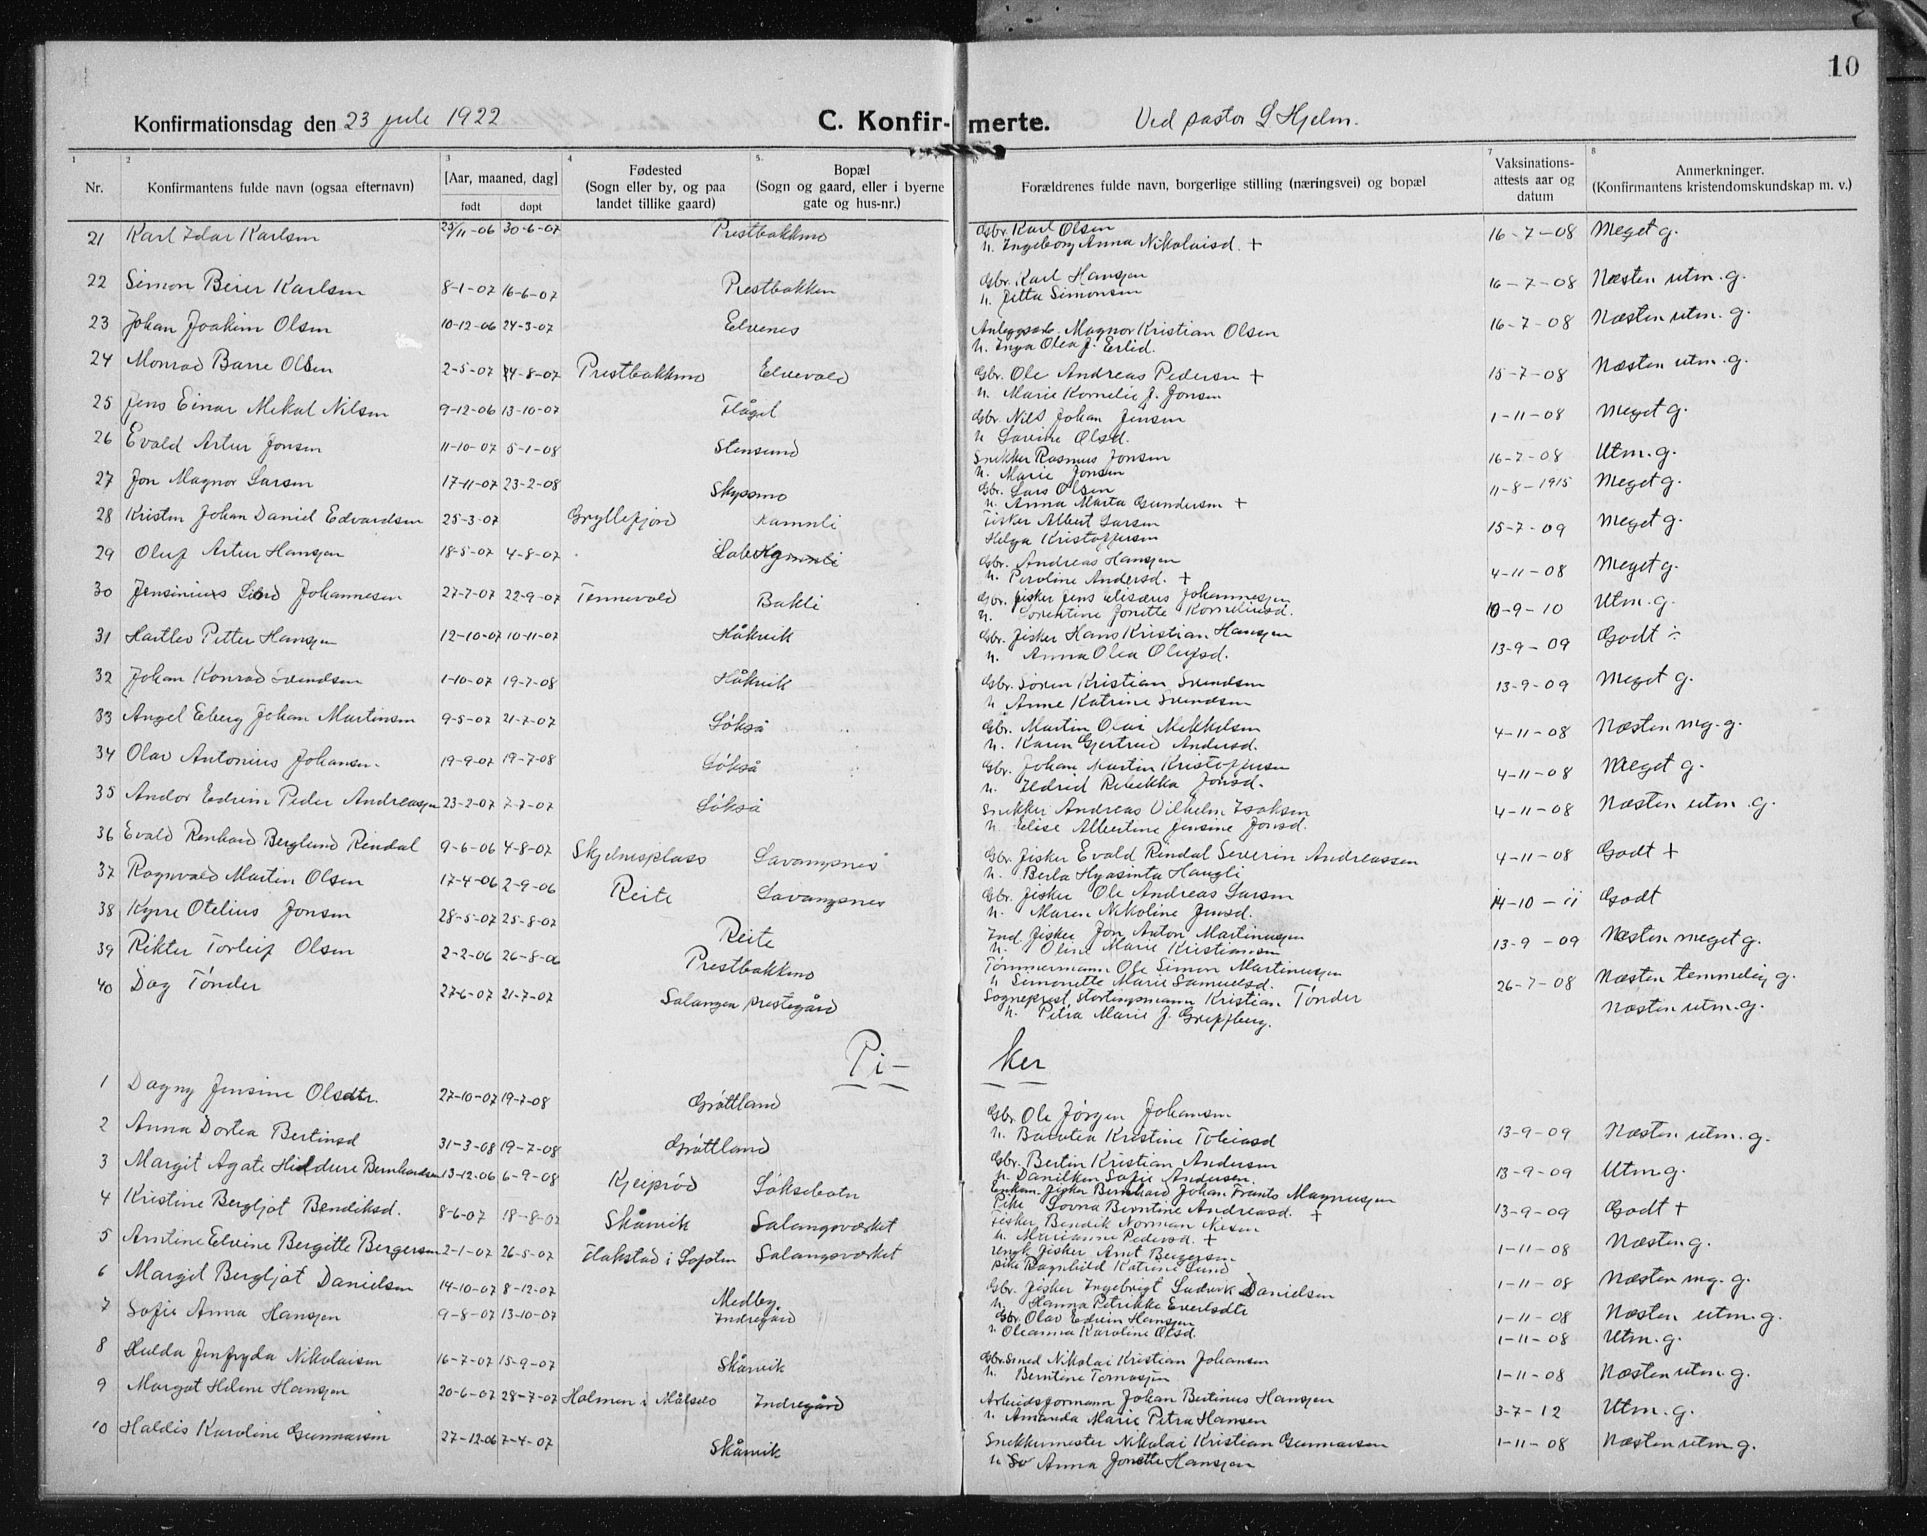 10
Konfirmationsdag den 23 juli 1922 C. Konfir- merte. Ved pastor S Hjelm.
1 2 3 4 5. 7 8
Nr. Konfirmantens fulde navn (ogsaa efternavn) [Aar, maaned, dag] født døpt Fødested (Sogn eller by, og paa landet tillike gaard) Bopæl (Sogn og gaard, eller i byerne gate og hus-nr.) Forældrenes fulde navn, borgerlige stilling (næringsvei) og bopæl Vaksinations-attests aar og datum Anmerkninger. (Konfirmantens kristendomskundskap m. v.)
21 Karl Idar Karlsen 25/11-06 30-6-07 Prestbakkmo Gbr. Karl Olsen 16-7-08 Meget g.
h. Ingeborg Anna Nikolaisd. +
22 Simon Beier Karlsen 8-1-07 16-6-07 Prestbakken Gbr. Karl Hansen 16-7-08 Næsten utm. g.
h. Jitta Simonsen
23 Johan Joakim Olsen 10-12-06 24-3-07 Elvenes Anleggsarb. Magnor Kristian Olsen 16-7-08 Næsten utm. g.
h. Inga Olea J. Erlid.
24 Monrad Barre Olsen 2-5-07 4-8-07 Prestbakkmo Elvevold Gbr. Ole Andreas Pedersen + 15-7-08 Næsten utm. g.
h. Marie Kornelie J. Jonsen
25 Jens Einar Mekal Nilsen 9-12-06 13-10-07 Flågel Gbr. Nils Johan Jensen 1-11-08 Meget g.
h. Lovine Olsd.
26 Evald Artur Jonsen 11-10-07 5-1-08 Stensund Snekker Rasmus Jonsen 16-7-08 Utm. g.
h. Marie Jonsen
27 Jon Magnor Larsen 17-11-07 23-2-08 Skyssmo Gbr. Lars Olsen 11-8-1915 Meget g.
h. Anna Marta Gundersen +
28 Kristen Johan Daniel Edvardsen 25-3-07 Gryllefjord Kamnli Fisker Albert Larsen 15-7-09 Meget g.
Helga Kristoffersen
29 Oluf Artur Hansen 18-5-07 4-8-07 Kamnli Gbr. Andreas Hansen 4-11-08 Meget g.
h. Peroline Andersd. +
30 Jensinius Lind Johannesen 27-7-07 22-9-07 Tennevold Bakli Gbr. fisker Jens Elisæus Johannesen 10-9-10 Utm. g.
h. Lorentine Jonette Korneliusd.
31 Hartlev Petter Hansen 12-10-07 10-11-07 Håkvik Gbr. fisker Hans Kristian Hansen 13-9-09 Godt ÷
h. Anna Olea Olufsd.
32 Johan Konrad Svendsen 1-10-07 19-7-08 Håkvik Gbr. Søren Kristian Svendsen 13-9-09 Meget g.
h. Anne Katrine Svendsen
33 Angel Eberg Johan Martinsen 9-5-07 21-7-07 Løkså Gbr. Martin Olai Mekkelsen 4-11-08 Næsten mg. g.
h. Karen Gjertrud Andersd.
34 Olav Antonius Johansen 19-9-07 19-7-08 Løkså Gbr. Johan Martin Kristoffersen 4-11-08 Meget g.
h. Ildrid Rebekka Jonsd.
35 Andor Edvin Peder Andreassen 23-2-07 7-7-07 Løkså Snekker Andreas Vilhelm Isaksen 4-11-08 Næsten utm. g.
h. Elise Albertine Jensine Jonsd.
36 Evald Renhard Berglund Rendal 9-6-06 4-8-07 Skjelnesplass Lavangsnes Gbr. fisker Evald Rindal Severin Andreassen 4-11-08 Godt +
h. Berla Hyasinta Haugli
37 Ragnvald Martin Olsen 17-4-06 2-9-06 Reite Lavangsnes Gbr. fisker Ole Andreas Larsen 14-10-11 Godt
h. Maren Nikoline Jensd.
38 Kyrre Otelius Jonsen 28-5-07 25-8-07 Reite Ind. fisker Jon Anton Martinussen 13-9-09 Næsten meget g.
h. Oline Marie Kristiansen
39 Rikter Torleif Olsen 2-2-06 26-8-06 Prestbakkmo Tømmermann Ole Simon Martinussen 26-7-08 Næsten temmelig g.
h Simonette Marie Samuelsd.
40 Dag Tönder 27-6-07 21-7-07 Salangen prestegård Sogneprest, Stortingsmann Kristian Tönder Næsten utm. g.
h. Petra Marie J. Greffberg.
Pi- ker
1 Dagny Jensine Olsdtr. 27-10-07 19-7-08 Grøttland Gbr Ole Jørgen Johansen 13-9-09 Næsten utm. g.
h. Barutea Kristine Tobiasd
2 Anna Dortea Bertinsd 31-3-08 19-7-08 Grøttland Gbr. Bertin Kristian Andersen 13-9-09 Utm g.
h. Danilken Sofie Andersen.
3 Margit Agate Hildure Bernhardsen 13-12-06 6-9-08 Kjeiprød Løksebotn Enkem. fisker Bernhard Johan Frants Magnussen 13-9-09 Godt +
Pike Lovna Berntine Andreasd. +
4 Kristine Bergljot Bendiksd. 8-6-07 18-8-07 Skårvik Salangsverket Fisker Bendik Norman Nilsen 1-11-08 Næsten g.
h. Marianne Pedersd. +
5 Arntine Elvine Bergitte Bergersen 2-1-07 26-5-07 Flakstad i Lofoten Salangsverket Ungk. fisker Arnt Bergersen 1-11-08 Næsten mg. g.
pike Ragnhild Katrine Lund
6 Margit Bergljot Danielsen 14-10-07 8-12-07 Medby Gbr. fisker Ingebrigt Ludvik Danielsen 1-11-08 Næsten utm. g.
h. Hanna Petrikke Evertsdtr
7 Sofie Anna Hansen 9-8-07 13-10-07 Indregård Gbr. Olav Edvin Hansen 1-11-08 Utm. g.
h. Oleanna Karoline Olsd.
8 Hulda Jenfryda Nikolaisen 16-7-07 15-9-07 Skårvik Gbr. Smed Nikolai Kristian Johansen 1-11-08 Næsten utm. g.
h. Berntine Tomassen
9 Margot Helene Hansen 20-6-07 28-7-07 Holmen i Målselv Indregård Arbeidsformann Johan Bertinus Hansen 3-7-12 Utm. g.
h. Amanda Marie Petra Hansen
10 Haldis Karoline Gunnarsen 27-12-06 7-4-07 Skårvik Snekkermester Nikolai Kristian Gunnarsen 1-11-08 Næsten utm. g.
h Anna Jonette Hansen